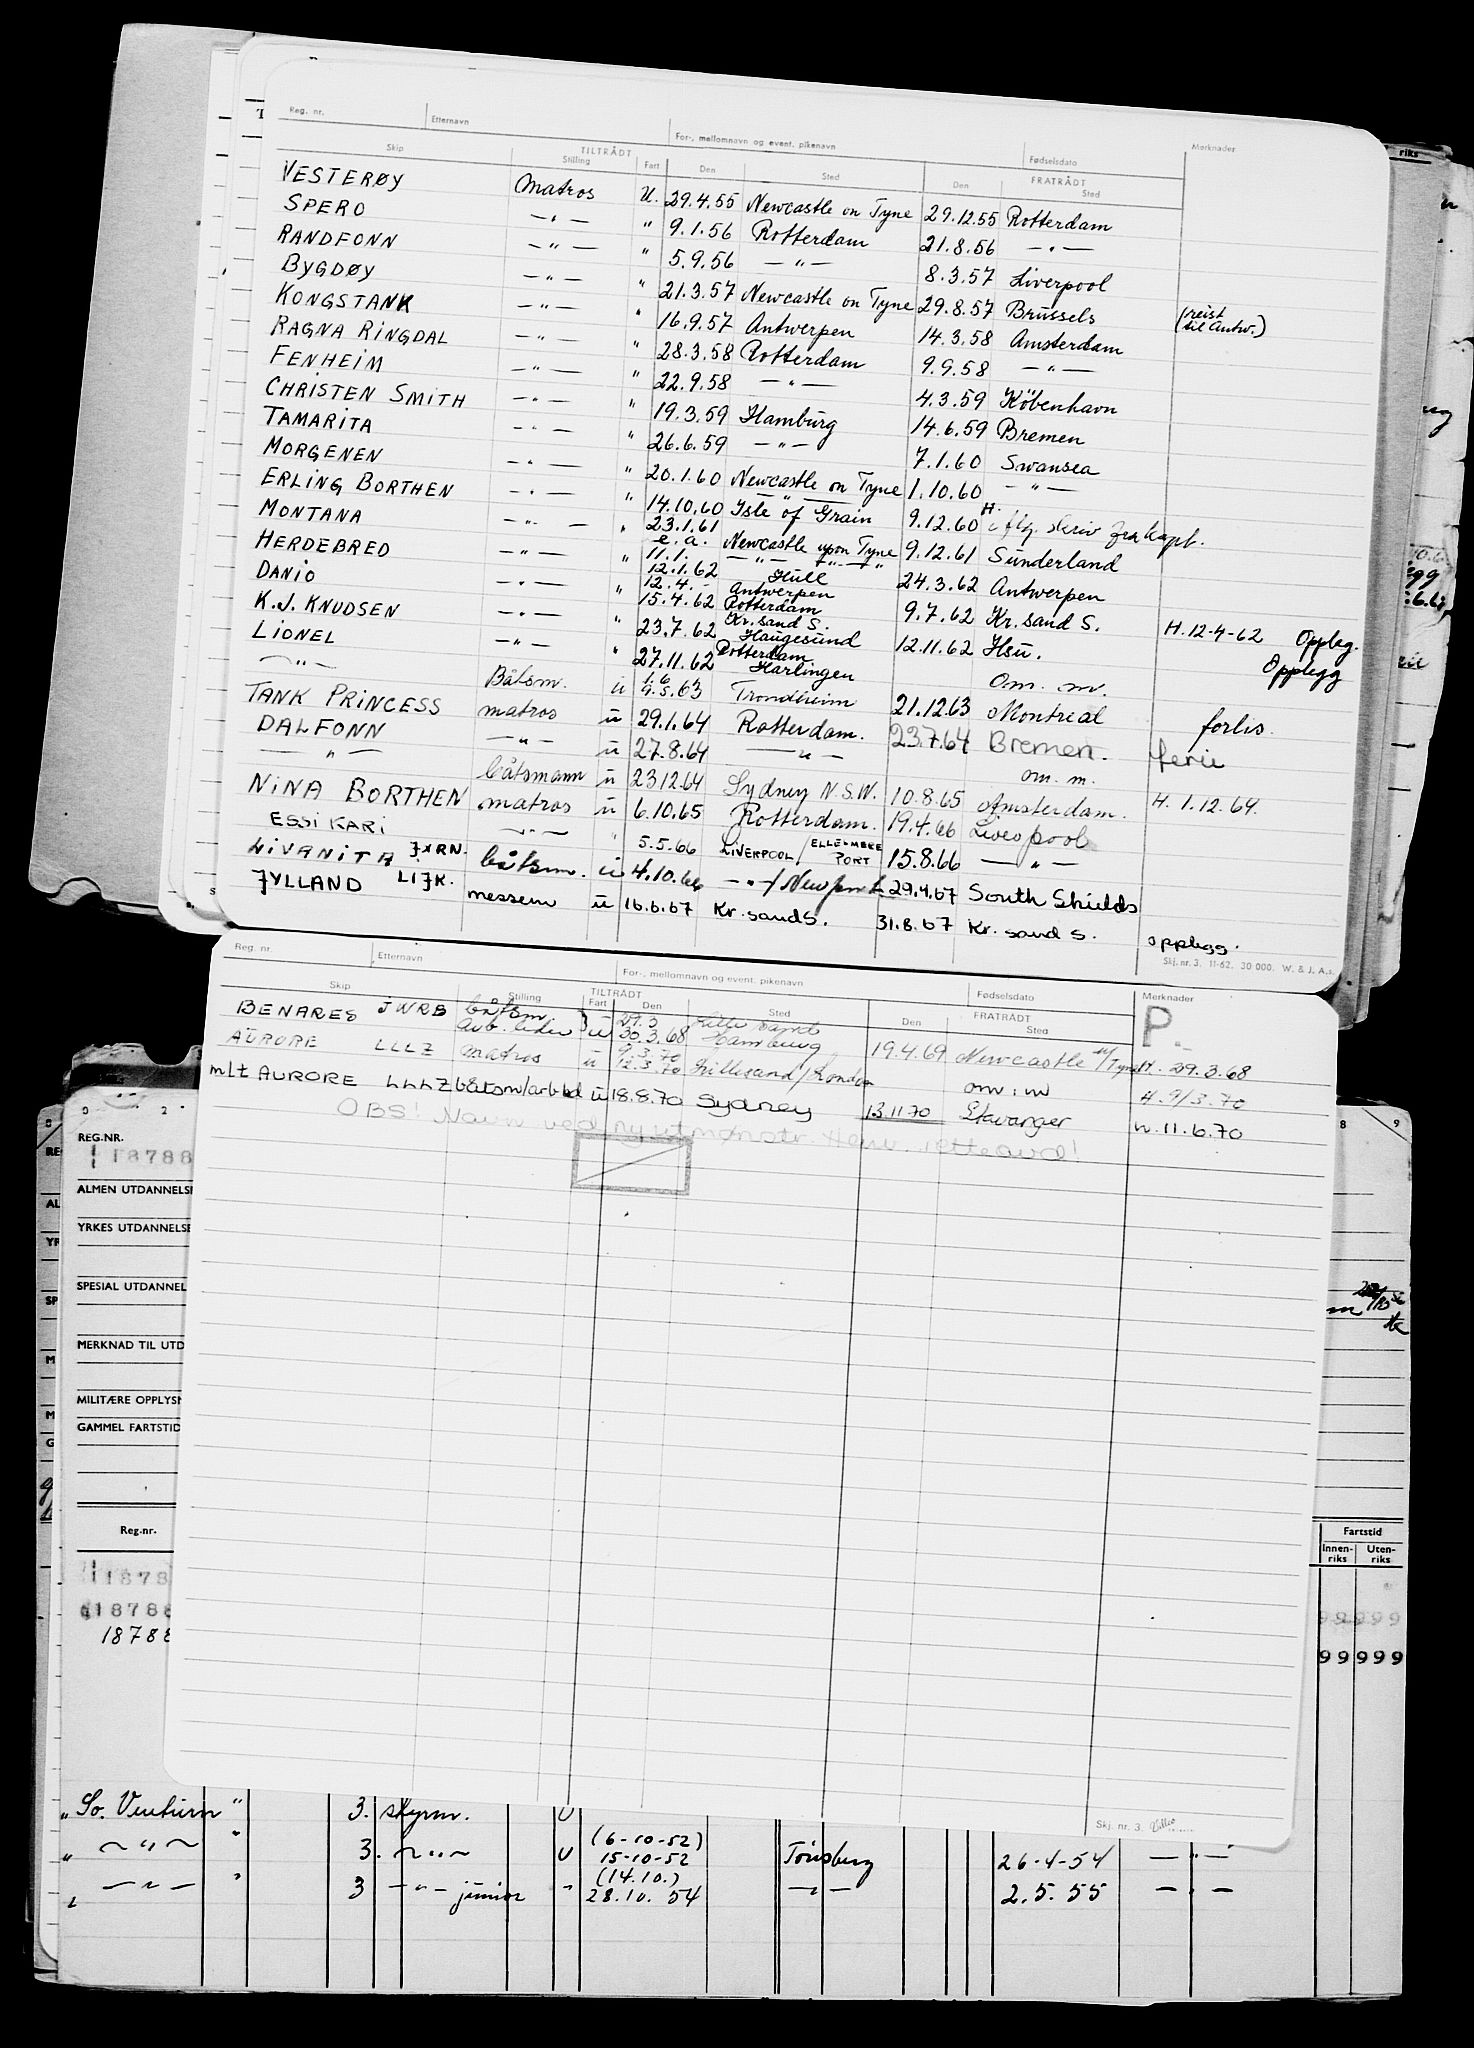 Reg. nr. Etternavn For-, mellomnavn og event. pikenavn Fødselsdato Merknader
Skip TILTRÅDT Stilling Fart Den Sted FRATRÅDT Den Sted
VESTERØY matros U. 29.4.55 Newcastle on Tyne 29.12.55 Rotterdam
SPERO —"— " 9.1.56 Rotterdam 21.8.56 —"—
RANDFONN —"— " 5.9.56 —"— 8.3.57 Liverpool
BYGDØY —"— " 21.3.57 Newcastle on Tyne 29.8.57 Brussels (reist til Antw.)
KONGSTANK —"— " 16.9.57 Antwerpen 14.3.58 Amsterdam
RAGNA RINGDAL —"— " 28.3.58 Rotterdam 9.9.58 —"—
FENHEIM —"— " 22.9.58 —"— 4.3.59 København
CHRISTEN SMITH —"— " 19.3.59 Hamburg 14.6.59 Bremen
TAMARITA —"— " 26.6.59 —"— 7.1.60 Swansea
MORGENEN —"— " 20.1.60 Newcastle on Tyne 1.10.60 —"—
ERLING BORTHEN —"— " 14.10.60 Isle of Grain 9.12.60 H. i flg. skriv fra kapt.
MONTANA —"— " 23.1.61 e.a. Newcastle upon Tyne 9.12.61 Sunderland
HERDEBRED —"— " 11.1. 12.1.62 —"— Hull 24.3.62 Antwerpen
DANIO —"— " 12.4.- 15.4.62 Antwerpen Rotterdam 9.7.62 Kr.sand S. H. 12-4-62 Opplegg.
K.J. KNUDSEN —"— " 23.7.62 Kr.sand S. Haugesund 12.11.62 Hsu. Opplegg
LIONEL —"— " 27.11.62 Rotterdam Harlingen Om. m.
—"— Båtsm. ü 1.6 9.5.63 Trondheim 21.12.63 Montreal forlis.
TANK PRINCESS matros ü 29.1.64 Rotterdam. 23.7.64 Bremen. ferie
DALFONN —"— ü 27.8.64 —"— om. m.
—"— båtsmann ü 23.12.64 Sydney N.S.W. 10.8.65 Amsterdam. H. 1.12.64.
NINA BORTHEN matros ü 6.10.65 Rotterdam. 19.4.66 Liverpool
ESSI KARI —"— " 5.5.66 LIVERPOOL / ELLESMERE PORT 15.8.66 —"—
LIVANITA JXRN. båtsm. ü 4.10.66 —"—/ Newport 29.4.67 South Shields
JYLLAND LIJK. messem ü 16.6.67 Kr.sandS. 31.8.67 Kr. sand S. opplegg.
Skj. nr. 3. 11-62. 30 000. W. & J. A.s.
Reg. nr. Etternavn For-, mellomnavn og event. pikenavn Fødselsdato Merknader
Skip TILTRÅDT Stilling Fart Den Sted FRATRÅDT Den Sted P.
BENARES JWRB båtsm. arb. leder } ü 29.3 30.3.68 Lillesand Hamburg 19.4.69 Newcastle u/Tyne H. 29.3.68
AURORE LLLZ matros ü 9.3.70 12.3.70 Lillesand/London om. m H. 9/3.70
m/t AURORE LLLZ båtsm/arb.ld ü 18.8.70 Sydney 13.11.70 Stavanger H. 11.6.70
OBS! Navn ved ny utmønstr. Henv. rette avd!
Skj. nr. 3.
REG.NR.
18788
ALMEN UTDANNELSE
YRKES UTDANNELSE
SPESIAL UTDANNEL
MERKNAD TIL UTD
MILITÆRE OPPLYSN
GAMMEL FARTSTID
Reg.nr. Fartstid
Innen-riks Uten-riks
1878
18788 99999
18788 99999
" So. Venturn " 3. styrm. U
" —"— " 3. —"— U (6-10-52) 15-10-52 Tønsberg 26-4-54 —"—
" —"— " 3 —"— junior " (14.10.) 28.10.54 —"— 2.5.55 —"—